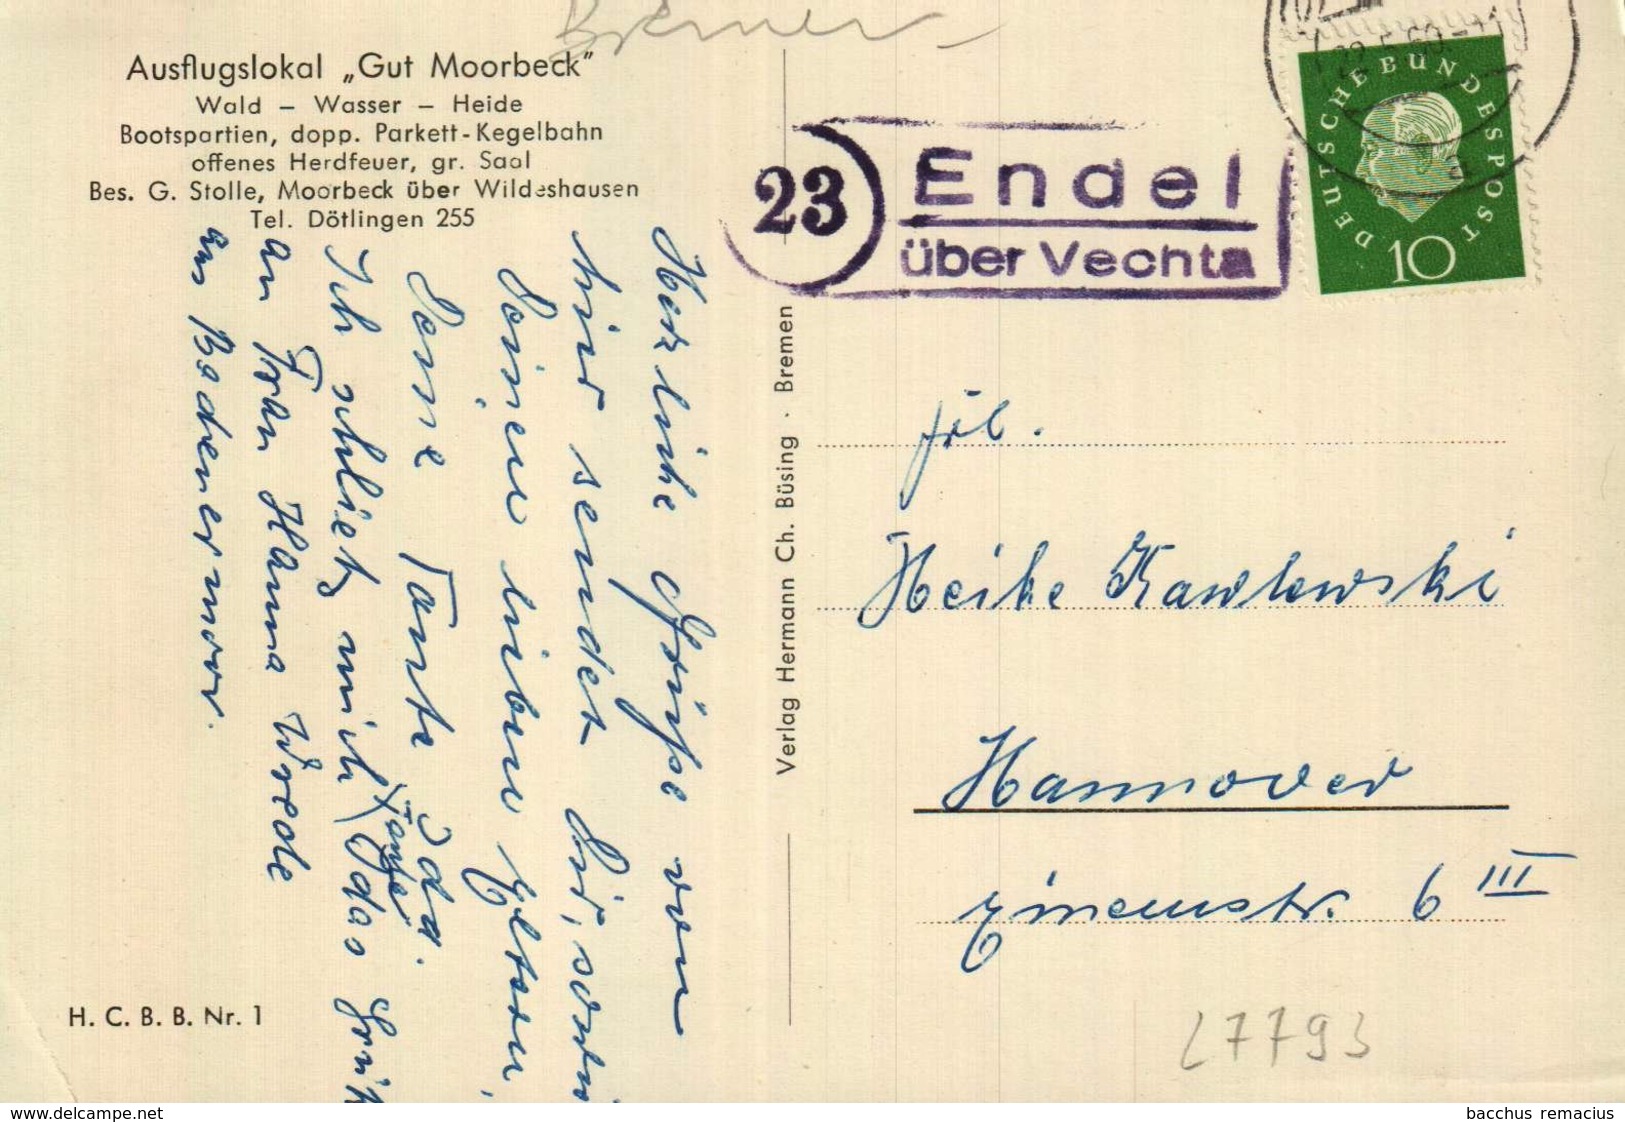 Bremen
Ausflugslokal „Gut Moorbeck"
Wald – Wasser – Heide
Bootspartien, dopp. Parkett-Kegelbahn
offenes Herdfeuer, gr. Saal
Bes. G. Stolle, Moorbeck über Wildeshausen
Tel. Dötlingen 255
Herzliche Grüße von
hier sendet Dir, sowie
Deinen lieben Eltern,
Deine Tante Ida.
Ich schließ mich das
Tante
an Frau Hanna Wrede
aus Bademermoor.
H. C. B. B. Nr. 1
Verlag Hermann Ch. Büsing · Bremen
23
Endel
über Vechta
DEUTSCHE BUNDESPOST
10
a
Frl.
Heike Kawlewski
Hannover
6 III
27793
www.delcampe.net
bacchus remacius